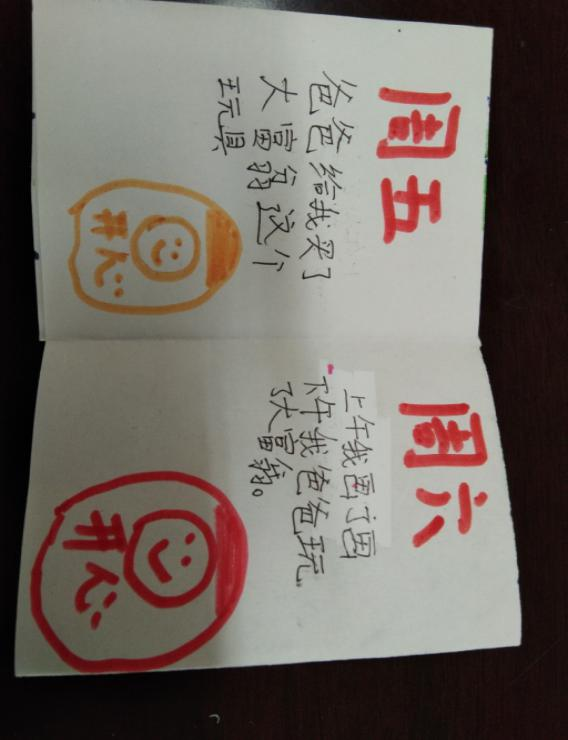 周五
爸爸给我买了
大富翁这个
玩具
开心
周六
上午我画了画
下午我爸爸玩
了大富翁。
开心